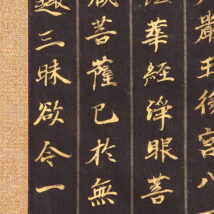 嚴王後宮八
華經淨眼菩
藏菩薩已於無
趣三昧欲令一